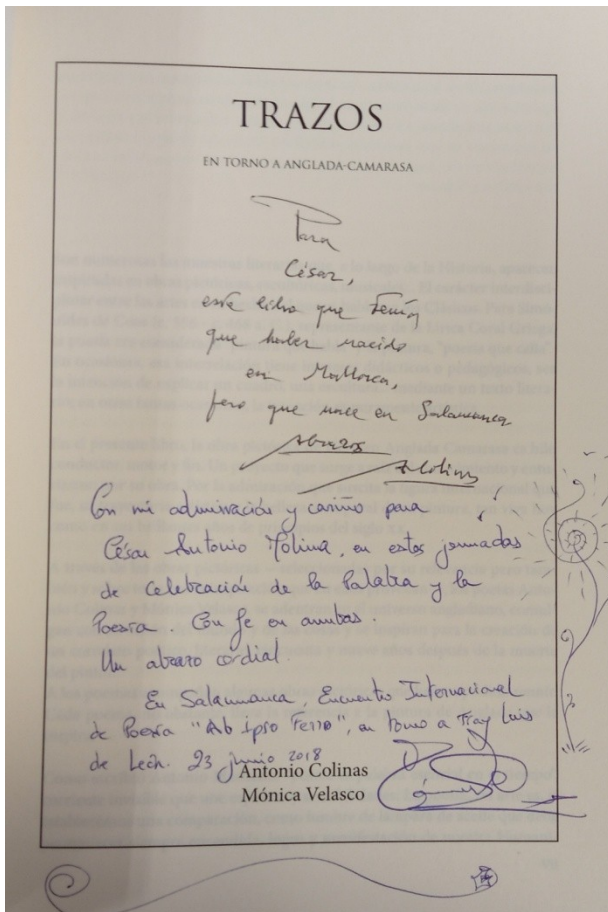 TRAZOS
EN TORNO A ANGLADA-CAMARASA
Para
César,
este libro que tenía
que haber nacido
en Mallorca,
pero que nace en Salamanca
Abrazos
A. Colinas
Con mi admiración y cariño para
César Antonio Molina, en estas jornadas
de celebración de la Palabra y la
Poesía. Con fe en ambas.
Un abrazo cordial.
En Salamanca, Encuentro Internacional
de Poesía "Ab Ipso Ferro", en torno a Fray Luis
de León. 23 junio 2018
Antonio Colinas
Mónica Velasco